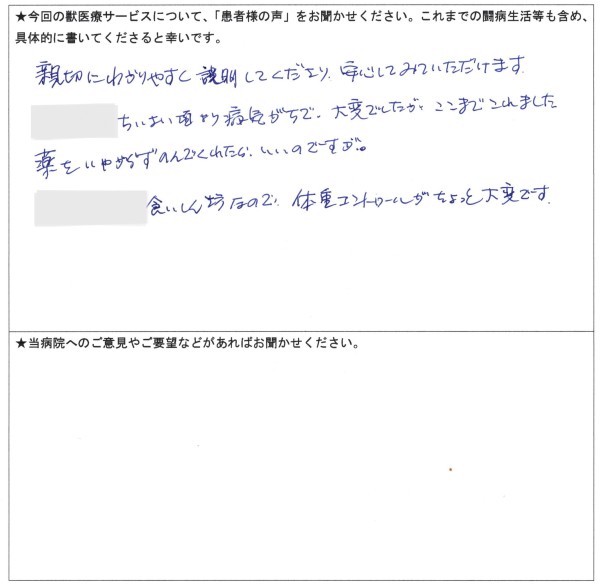 ★今回の獣医療サービスについて、「患者様の声」をお聞かせください。これまでの闘病生活等も含め、
具体的に書いてくださると幸いです。
親切にわかりやすく説明してくださり、安心してみていただけます
ちいさい頃から病気がちで、大変でしたが、ここまでこれました
薬をいやがらずのんでくれたら、いいのですが。
食いしん坊なので、体重コントロールがちょっと大変です。
★当病院へのご意見やご要望などがあればお聞かせください。